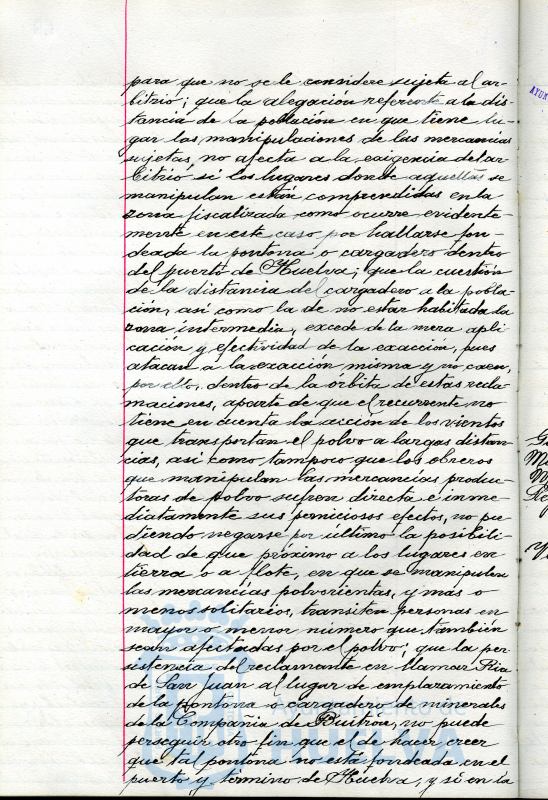 para que no se le considere sujeta al ar-
bitrio; que la alegación referente a la dis-
tancia de la población en que tiene lu-
gar las manipulaciones de las mercancias
sujetas, no afecta a la exigencia del ar-
bitrio si los lugares donde aquellas se
manipulan están comprendidas en la
zona fiscalizada como ocurre evidente-
mente en este caso por hallarse fon-
deada la pontona o cargadero dentro
del puerto de Huelva; que la cuestión
de la distancia del cargadero a la pobla-
ción, asi como la de no estar habitada la
zona intermedia, excede de la mera apli-
cación y efectividad de la exacción, pues
atacan a la exacción misma y no caen,
por ello, dentro de la orbita de estas recla-
maciones, aparte de que el recurrente no
tiene en cuenta la acción de los vientos
que transportan el polvo a largas distan-
cias, asi como tampoco que los obreros
que manipulan las mercancias produc-
toras de polvo sufren directa e inme-
diatamente sus perniciosos efectos, no pu-
diendo negarse por último la posibili-
dad de que próximo a los lugares en
tierra o a flote, en que se manipulan
las mercancias polvorientas, y mas o
menos solitarios, transiten personas en
mayor o menor número que también
sean afectadas por el polvo; que la per-
sistencia del reclamante en llamar Ria
de San Juan al lugar de emplazamiento
de la pontona o cargadero de minerales
de la Compañia de Buitrón, no puede
perseguir otro fin que el de hacer creer
que tal pontona no está fondeada en el
puerto y término de Huelva, y si en la
AYUN
HUELVA